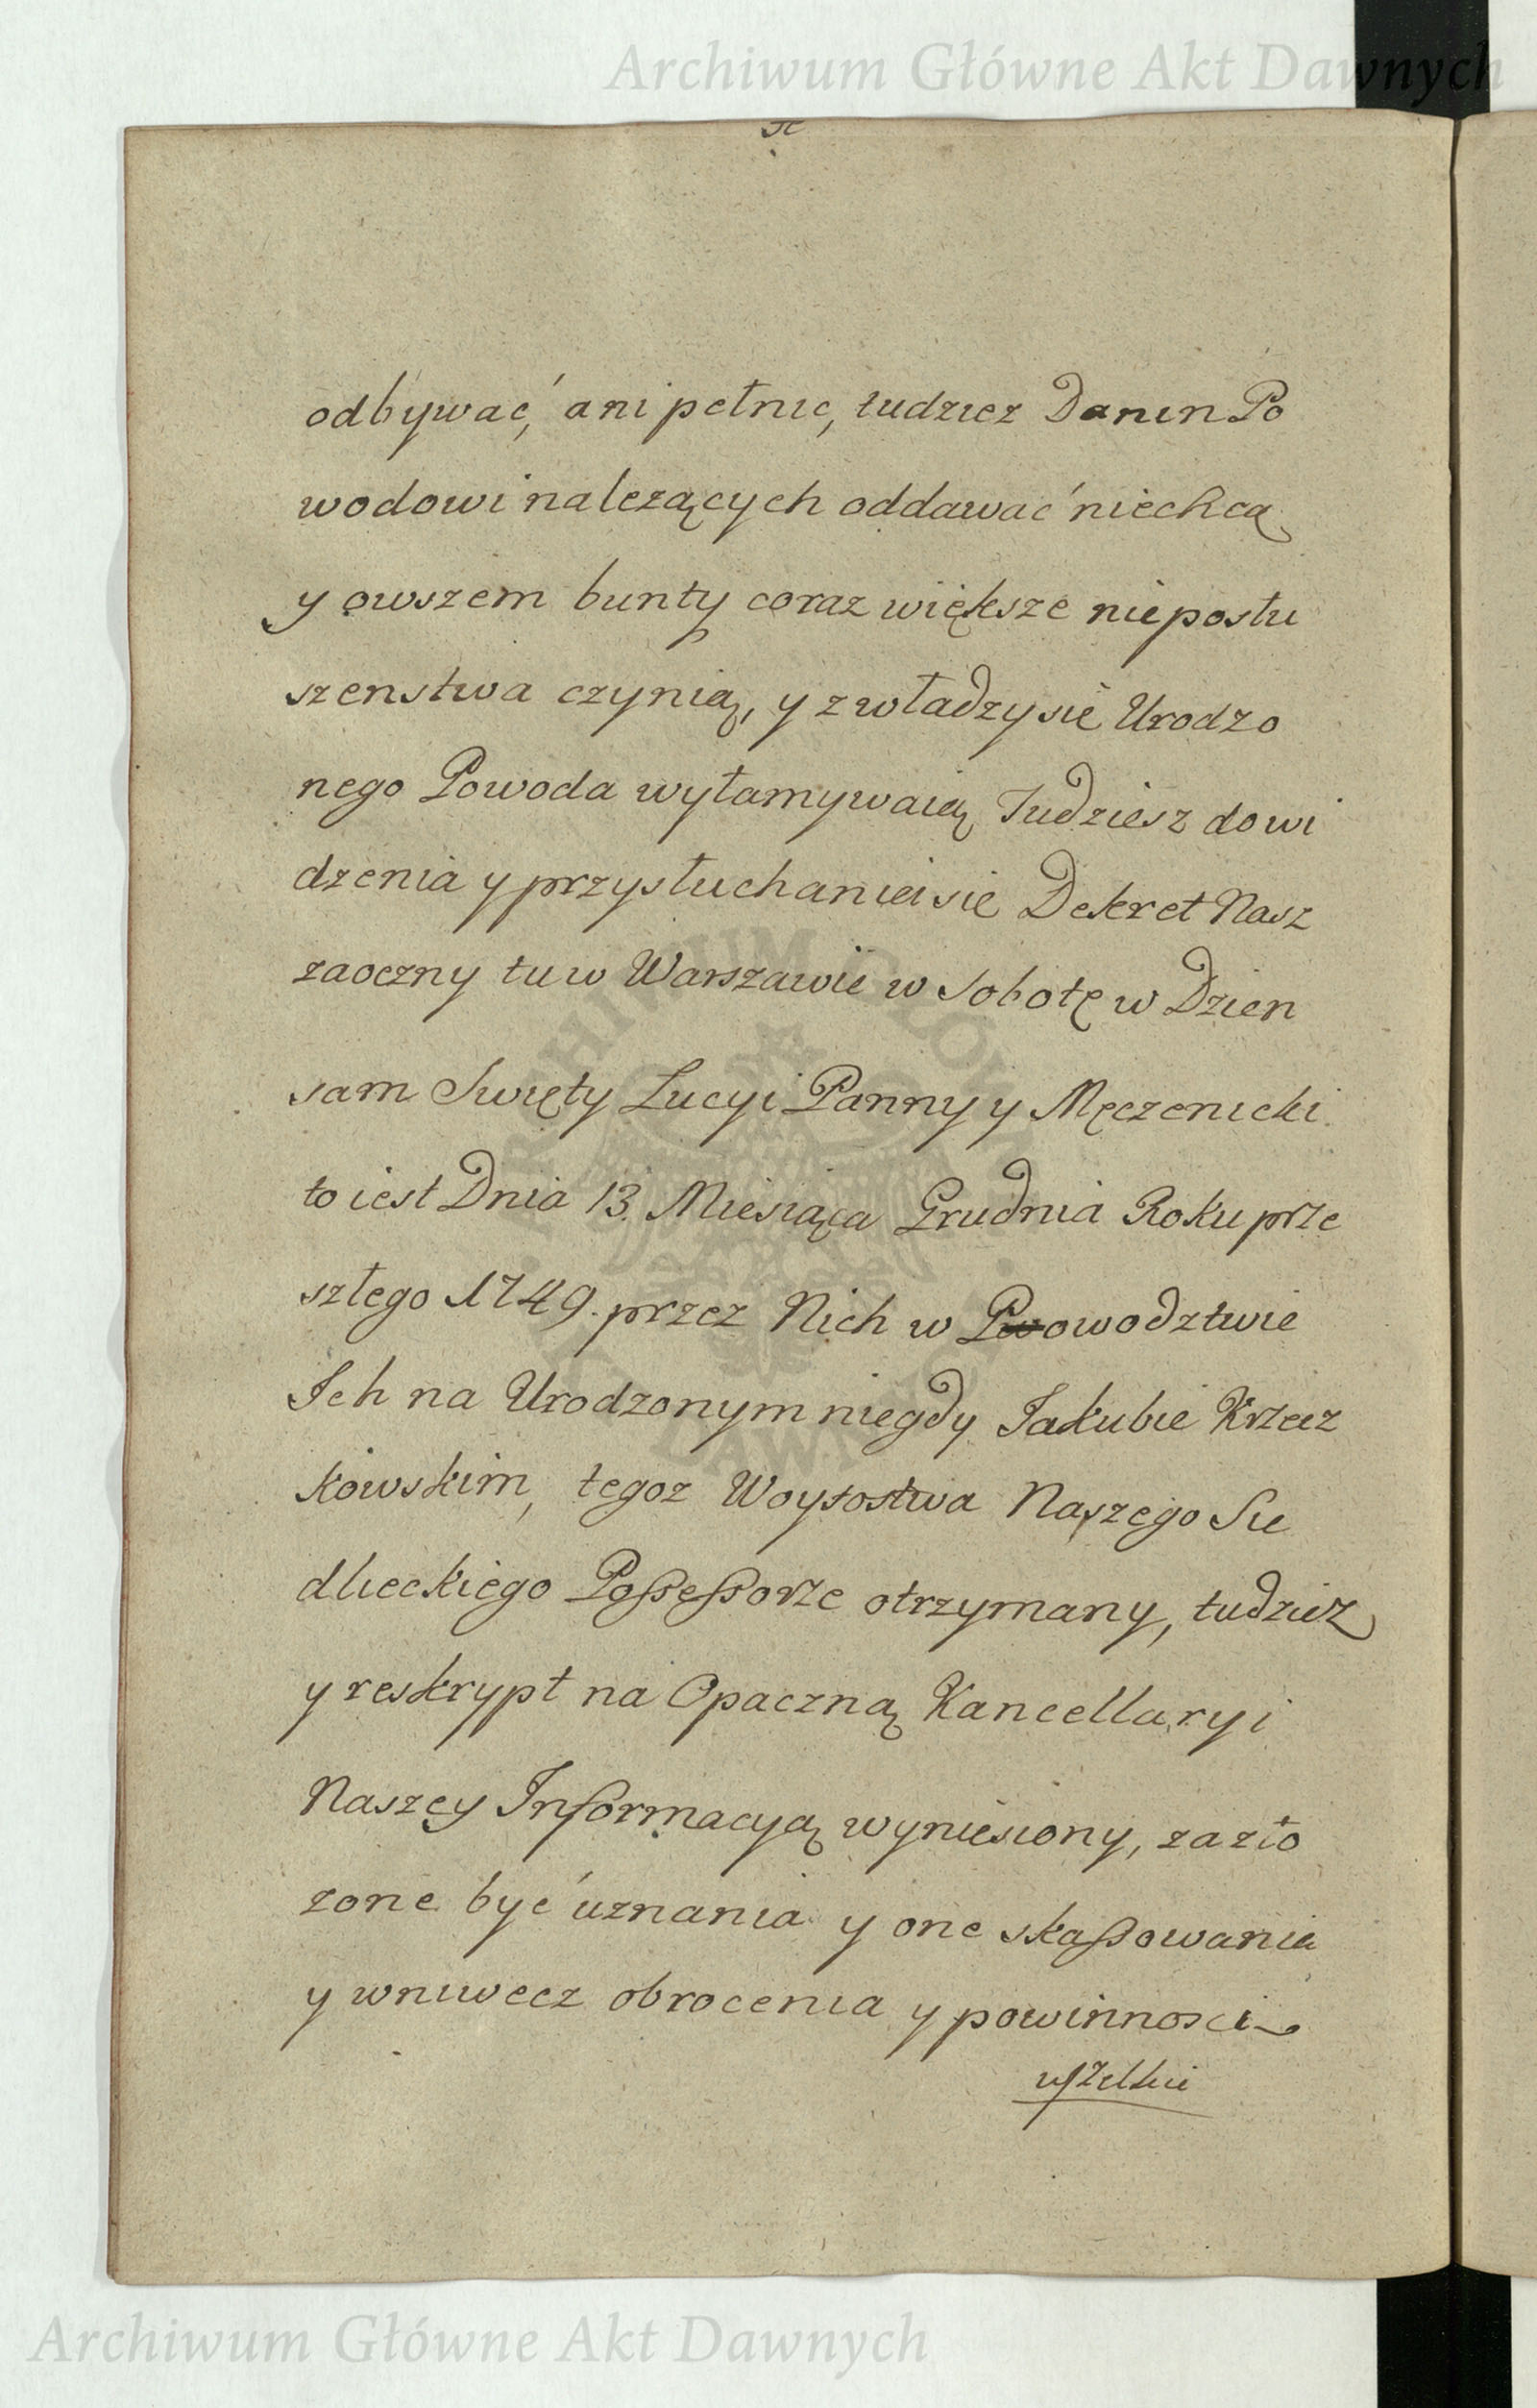 Archiwum Główne Akt Dawnych
odbywać, ani pełnic, tudziez Danin Po
wodowi nalezących oddawać niechcą
y owszem bunty coraz większe nieposłu
szenstwa czynią, y z władzy się Urodzo
nego Powoda wyłamywaią Tudziesz do wi
dzenia y przysłuchania się Dekret Nasz
zaoczny tu w Warszawie w Sobotę w Dzien
sam Swięty Lucyi Panny y Męczenicki
to iest Dnia 13. Miesiąca Grudnia Roku prze
szłego 1749. przez Nich w Powodztwie
Ich na Urodzonym niegdy Jakubie
kowskim, tegoz Woytostwa Naszego Sie
dlieckiego Possessorze otrzymany, tudziez
y reskrypt na Opaczną Kancellaryi
Naszey Informacyą wyniesiony, za zło
zone być uznania y one skassowania
y wniwecz obrocenia y powinnosci
wszelkie
ARCHIWUM GŁÓWNE AKT DAWNYCH
Archiwum Główne Akt Dawnych